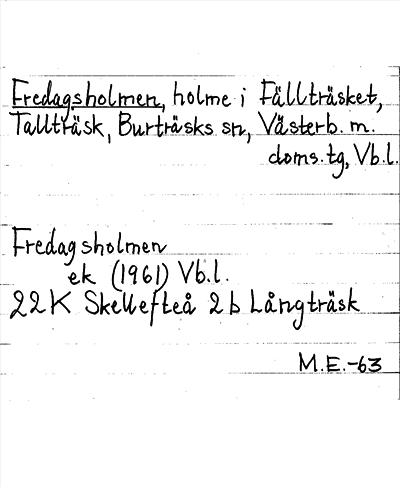 Fredagsholmen, holme i Fällträsket,
Tallträsk, Burträsks sn, Västerb. m.
doms.tg, Vb.l.
Fredagsholmen
ek (1961) Vb.l.
22K Skellefteå 2b Långträsk
M.E.-63